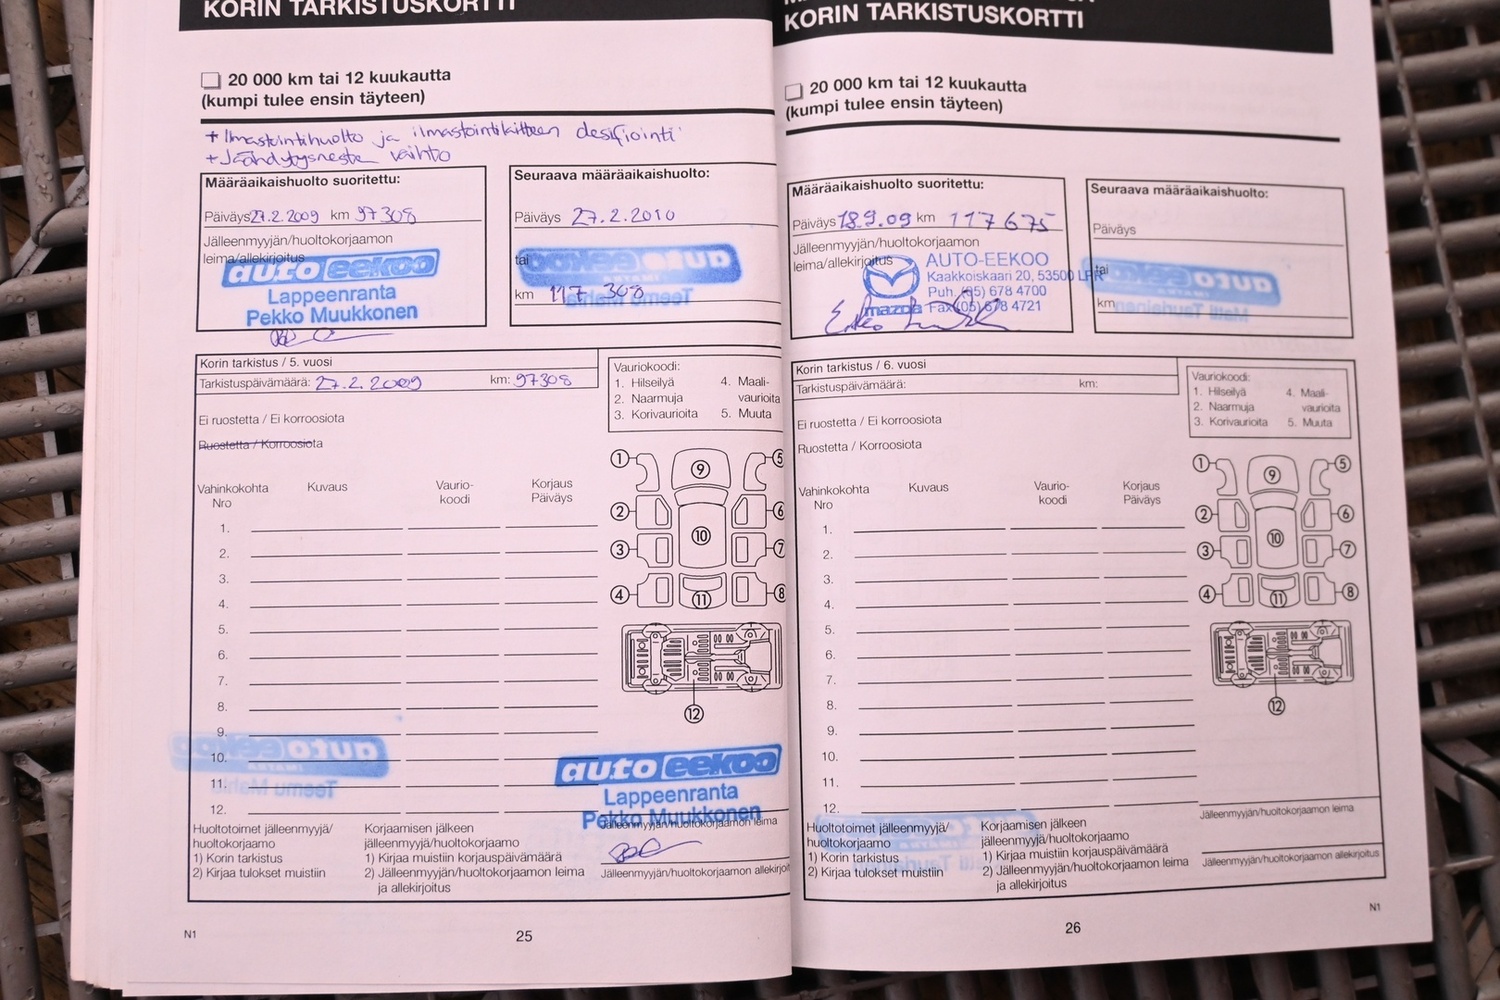 KORIN TARKISTUSKORTTI
20 000 km tai 12 kuukautta
(kumpi tulee ensin täyteen)
+ Ilmastointihuolto ja ilmastointilaitteen desifiointi
+ Jäähdytysneste vaihto
Määräaikaishuolto suoritettu:
Päiväys 27.2.2009 km 97308
Jälleenmyyjän/huoltokorjaamon
leima/allekirjoitus
auto eekoo
Lappeenranta
Pekko Muukkonen
Seuraava määräaikaishuolto:
Päiväys 27.2.2010
tai
km 117 308
Korin tarkistus / 5. vuosi
Tarkistuspäivämäärä: 27.2.2009 km: 97308
Vauriokoodi:
1. Hilseilyä 4. Maali-
2. Naarmuja vaurioita
3. Korivaurioita 5. Muuta
Ei ruostetta / Ei korroosiota
Ruostetta / Korroosiota
Vahinkokohta Kuvaus Vaurio- Korjaus
Nro koodi Päiväys
1.
2.
3.
4.
5.
6.
7.
8.
9.
10.
11.
12.
1 9 5
2 10 6
3 7
4 11 8
12
auto eekoo
Lappeenranta
Pekko Muukkonen
Jälleenmyyjän/huoltokorjaamon leima
Jälleenmyyjän/huoltokorjaamon allekirjoi
Huoltotoimet jälleenmyyjä/
huoltokorjaamo
1) Korin tarkistus
2) Kirjaa tulokset muistiin
Korjaamisen jälkeen
jälleenmyyjä/huoltokorjaamo
1) Kirjaa muistiin korjauspäivämäärä
2) Jälleenmyyjän/huoltokorjaamon leima
ja allekirjoitus
N1
25
KORIN TARKISTUSKORTTI
20 000 km tai 12 kuukautta
(kumpi tulee ensin täyteen)
Määräaikaishuolto suoritettu:
Päiväys 18.9.09 km 117675
Jälleenmyyjän/huoltokorjaamon
leima/allekirjoitus
AUTO-EEKOO
Kaakkoiskaari 20, 53500 LPR
Puh. (05) 678 4700
mazda Fax (05) 678 4721
Seuraava määräaikaishuolto:
Päiväys
tai
km
Korin tarkistus / 6. vuosi
Tarkistuspäivämäärä: km:
Vauriokoodi:
1. Hilseilyä 4. Maali-
2. Naarmuja vaurioita
3. Korivaurioita 5. Muuta
Ei ruostetta / Ei korroosiota
Ruostetta / Korroosiota
Vahinkokohta Kuvaus Vaurio- Korjaus
Nro koodi Päiväys
1.
2.
3.
4.
5.
6.
7.
8.
9.
10.
11.
12.
1 9 5
2 10 6
3 7
4 11 8
12
Jälleenmyyjän/huoltokorjaamon leima
Jälleenmyyjän/huoltokorjaamon allekirjoitus
Huoltotoimet jälleenmyyjä/
huoltokorjaamo
1) Korin tarkistus
2) Kirjaa tulokset muistiin
Korjaamisen jälkeen
jälleenmyyjä/huoltokorjaamo
1) Kirjaa muistiin korjauspäivämäärä
2) Jälleenmyyjän/huoltokorjaamon leima
ja allekirjoitus
N1
26